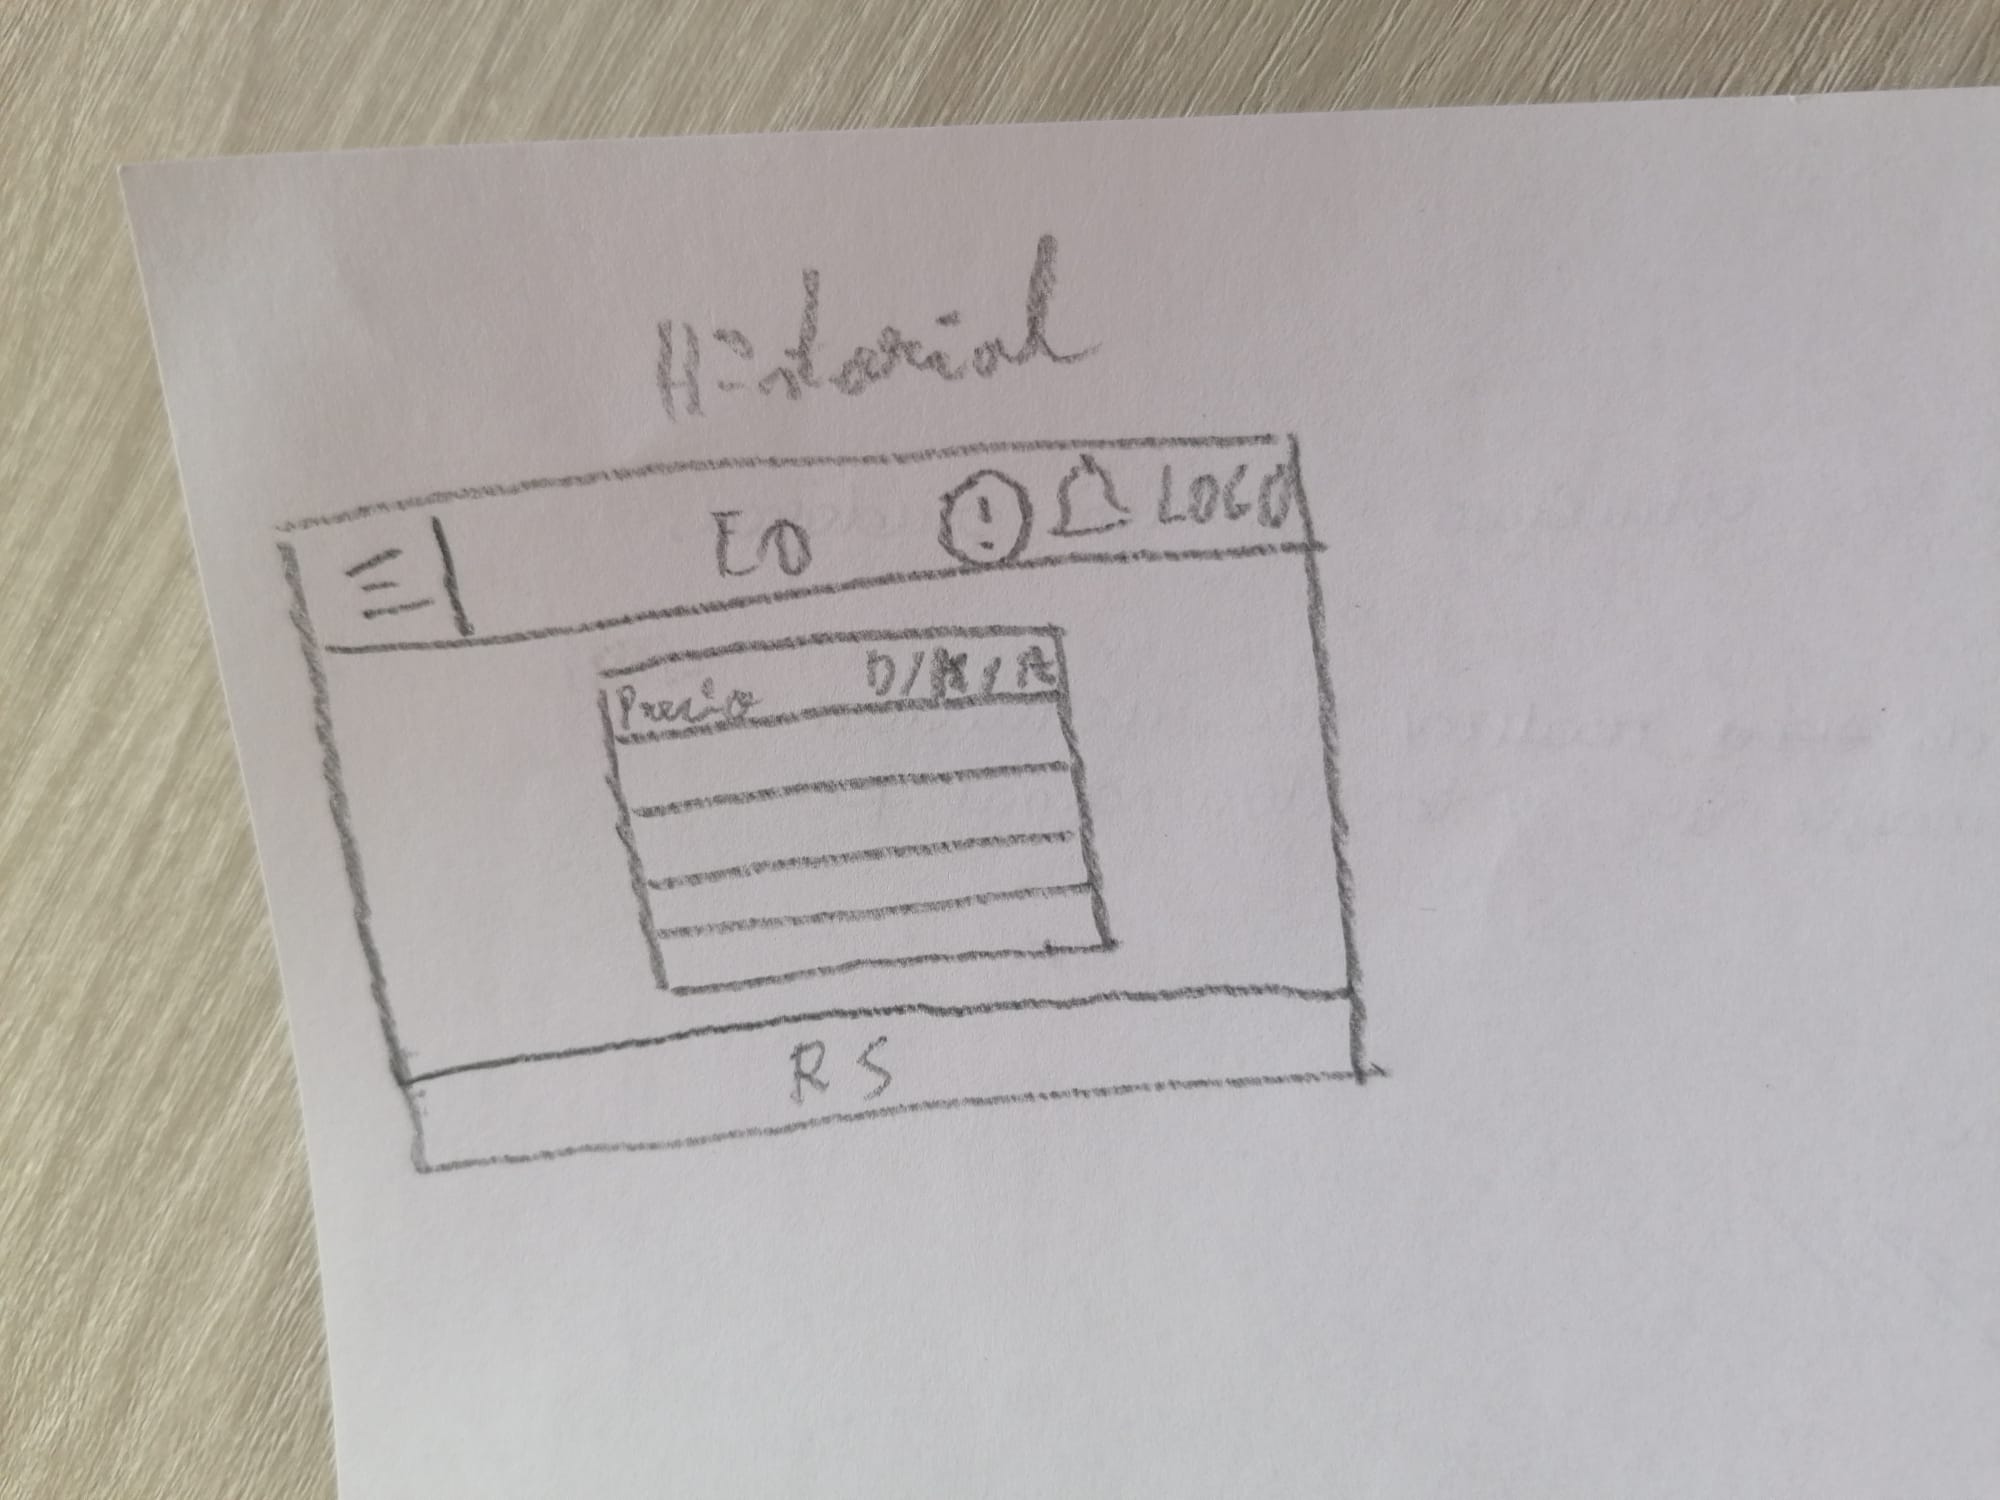 Historial
EO ! LOGO
Precio D/M/A
RS